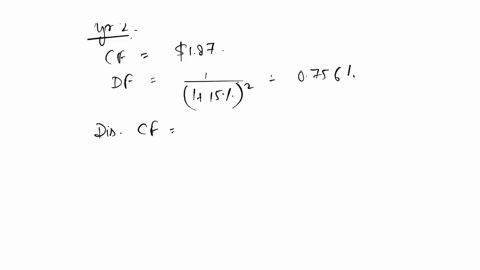 yr 2.
CF = $1.87.
DF = 1/(1+15%)^2 = 0.756%.
Dis. CF =